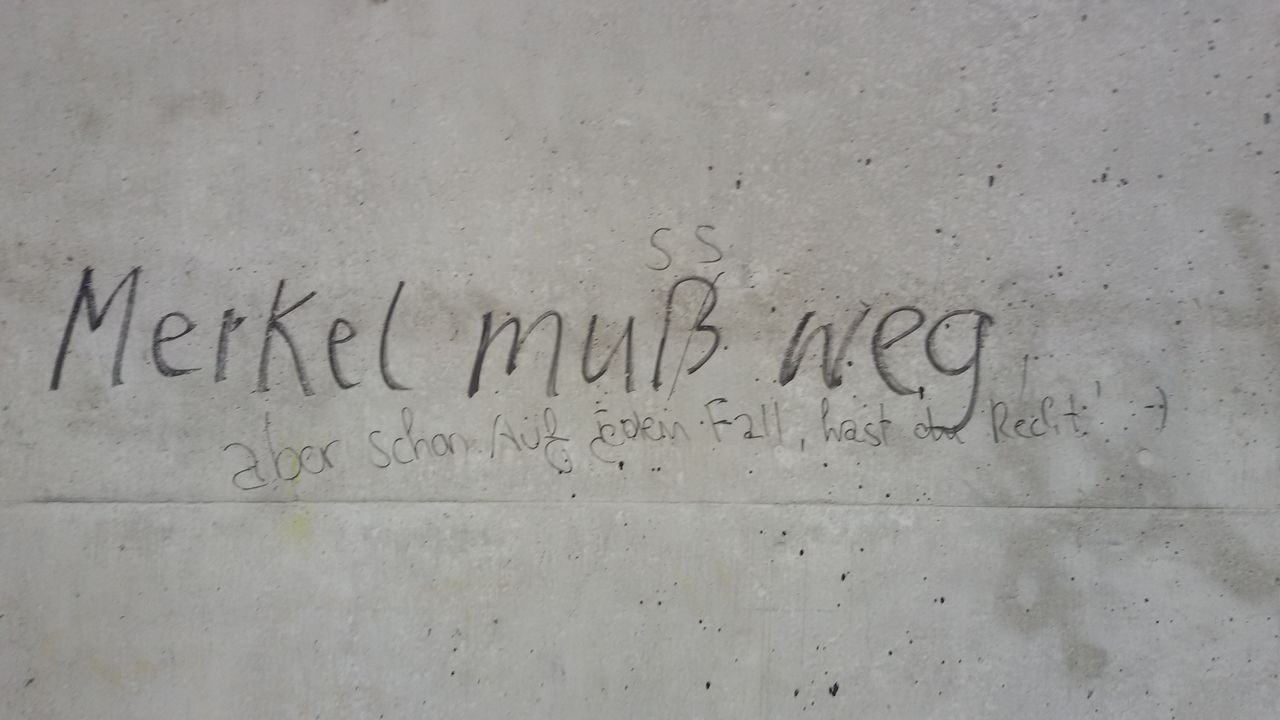 ss
Merkel muß weg
aber schon Auf jeden Fall, hast du Recht! :-)